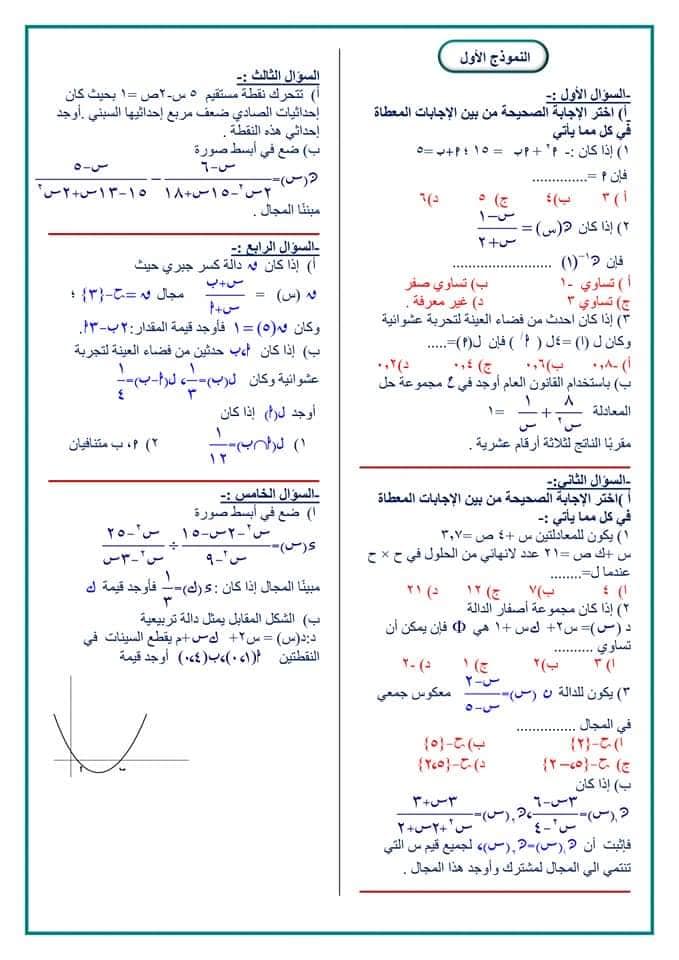 النموذج الأول
-السؤال الأول :-
أ) اختر الإجابة الصحيحة من بين الإجابات المعطاة
في كل مما يأتي
١) إذا كان :- ٢م + م ب = ١٥ ؛ م+ب =٥
فإن م =.............
أ ) ٣ ب)٤ ج) ٥ د)٦
٢) إذا كان ن(س) = س-١ / س+٢
فإن ن-١(١) .........................
أ ) تساوي -١ ب) تساوي صفر
ج) تساوي ٣ د) غير معرفة .
٣) إذا كان احدث من فضاء العينة لتحربة عشوائية
وكان ل (ا) =٤ل ( /ا ) فإن ل(م)=.....
أ)-٠,٨ ب)٠,٦ ج) ٠,٤ د)٠,٢
ب) باستخدام القانون العام أوجد في ع مجموعة حل
المعادلة ٨ / س٢ + ١ / س =١
مقربًا الناتج لثلاثة أرقام عشرية .
-السؤال الثاني:-
أ )اختر الإجابة الصحيحة من بين الإجابات المعطاة
في كل مما يأتي :-
١) يكون للمعادلتين س +٤ ص =٣,٧
س +ك ص =٢١ عدد لانهائي من الحلول في ح × ح
عندما ل=........
ا) ٤ ب)٧ ج) ١٢ د) ٢١
٢) إذا كان مجموعة أصفار الدالة
د (س)= س٢+ ك س +١ هي Φ فإن يمكن أن
تساوي ..........
ا) ٣ ب)٢ ج) ١ د)-٢
٣) يكون للدالة ن (س)= س-٢ / س-٥ معكوس جمعي
في المجال ...............
ا)ح-{٢} ب)ح-{٥}
ج) ح-{٥،-٢} د)ح-{٢،٥}
ب) إذا كان
ن١(س)= ٣س-٦ / س٢-٤ ، ن٢(س)= ٣س+٣ / س٢+٢س+٢
فإثبت أن ن١(س)=ن٢(س)، لجميع قيم س التي
تنتمي الي المجال لمشترك وأوجد هذا المجال .
السؤال الثالث :-
أ) تتحرك نقطة مستقيم ٥ س-٢ص =١ بحيث كان
إحداثيات الصادي ضعف مربع إحداثيها السيني .أوجد
إحداثي هذه النقطة .
ب) ضع في أبسط صورة
ن(س)= س-٦ / ٢س٢-١٥س+١٨ − س-٥ / ١٥-١٣س+٢س٢
مبينًا المجال .
-السؤال الرابع :-
أ) إذا كان ن دالة كسر جبري حيث
ن (س) = س+ب / س+ا مجال ن =ح-{٣} ؛
وكان ن(٥) =١ فأوجد قيمة المقدار:٢ب-٣ا.
ب) إذا كان ا،ب حدثين من فضاء العينة لتجربة
عشوائية وكان ل(ب)=١/٣، ل(ا-ب)=١/٤
أوجد ل(ا) إذا كان
١) ل(ا∩ب)=١/١٢ ٢) م، ب متنافيان
-السؤال الخامس :-
ا) ضع في أبسط صورة
ى(س)= س٢-٢س-١٥ / س٢-٩ ÷ س٢-٢٥ / س٢-٣س
مبينًا المجال إذا كان :ى(ك)=١/٣ فأوجد قيمة ك
ب) الشكل المقابل يمثل دالة تربيعية
د:د(س) = س٢+ ك س+م يقطع السينات في
النقطتين ا(٠،١)،ب(٠،٤) أوجد قيمة